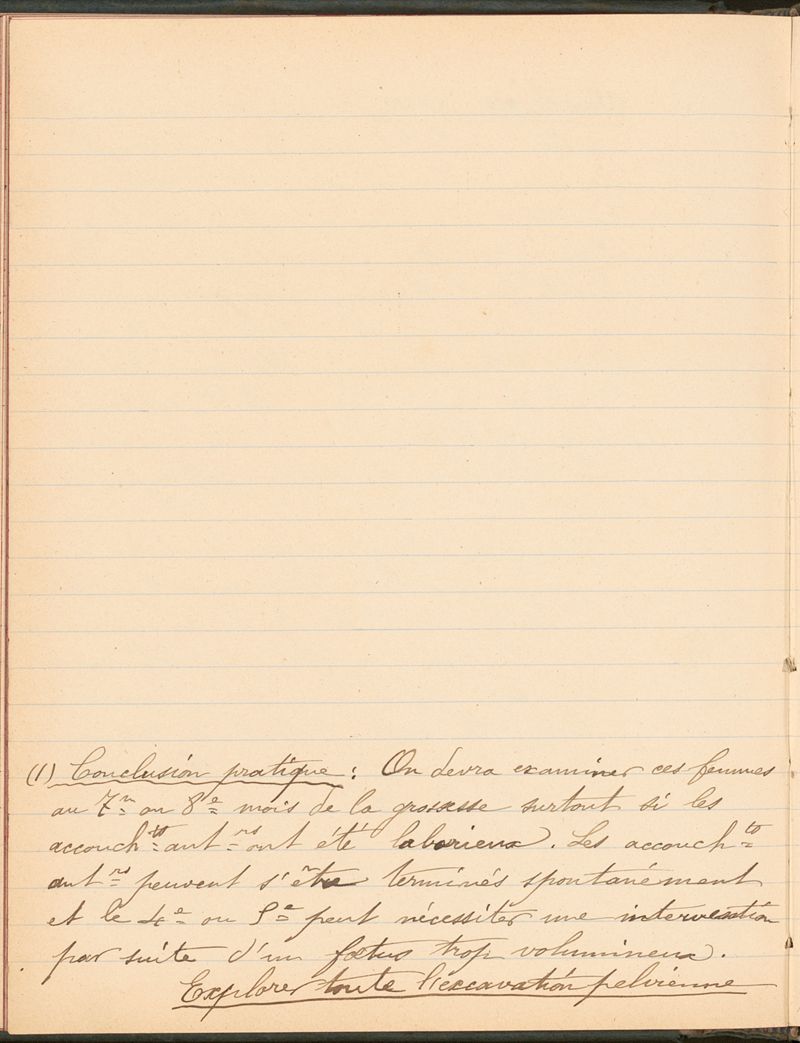 (1) Conclusion pratique : On devra examiner ces femmes
au 7m ou 8e mois de la grossesse surtout si les
accouchts antrs ont été laborieux. Les accouchts
antrs peuvent s'être terminés spontanément
et le 4e ou 5e peut nécessiter une intervention
par suite d'un fœtus trop volumineux.
Explorer toute l'excavation pelvienne